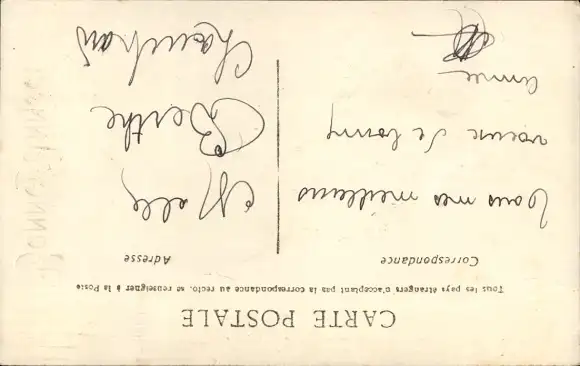 CARTE POSTALE
Tous les pays étrangers n'acceptant pas la correspondance au recto, se renseigner à la Poste
Correspondance
Tous mes meilleurs
voeux de bonny
anné
Adresse
Melle
Berthe